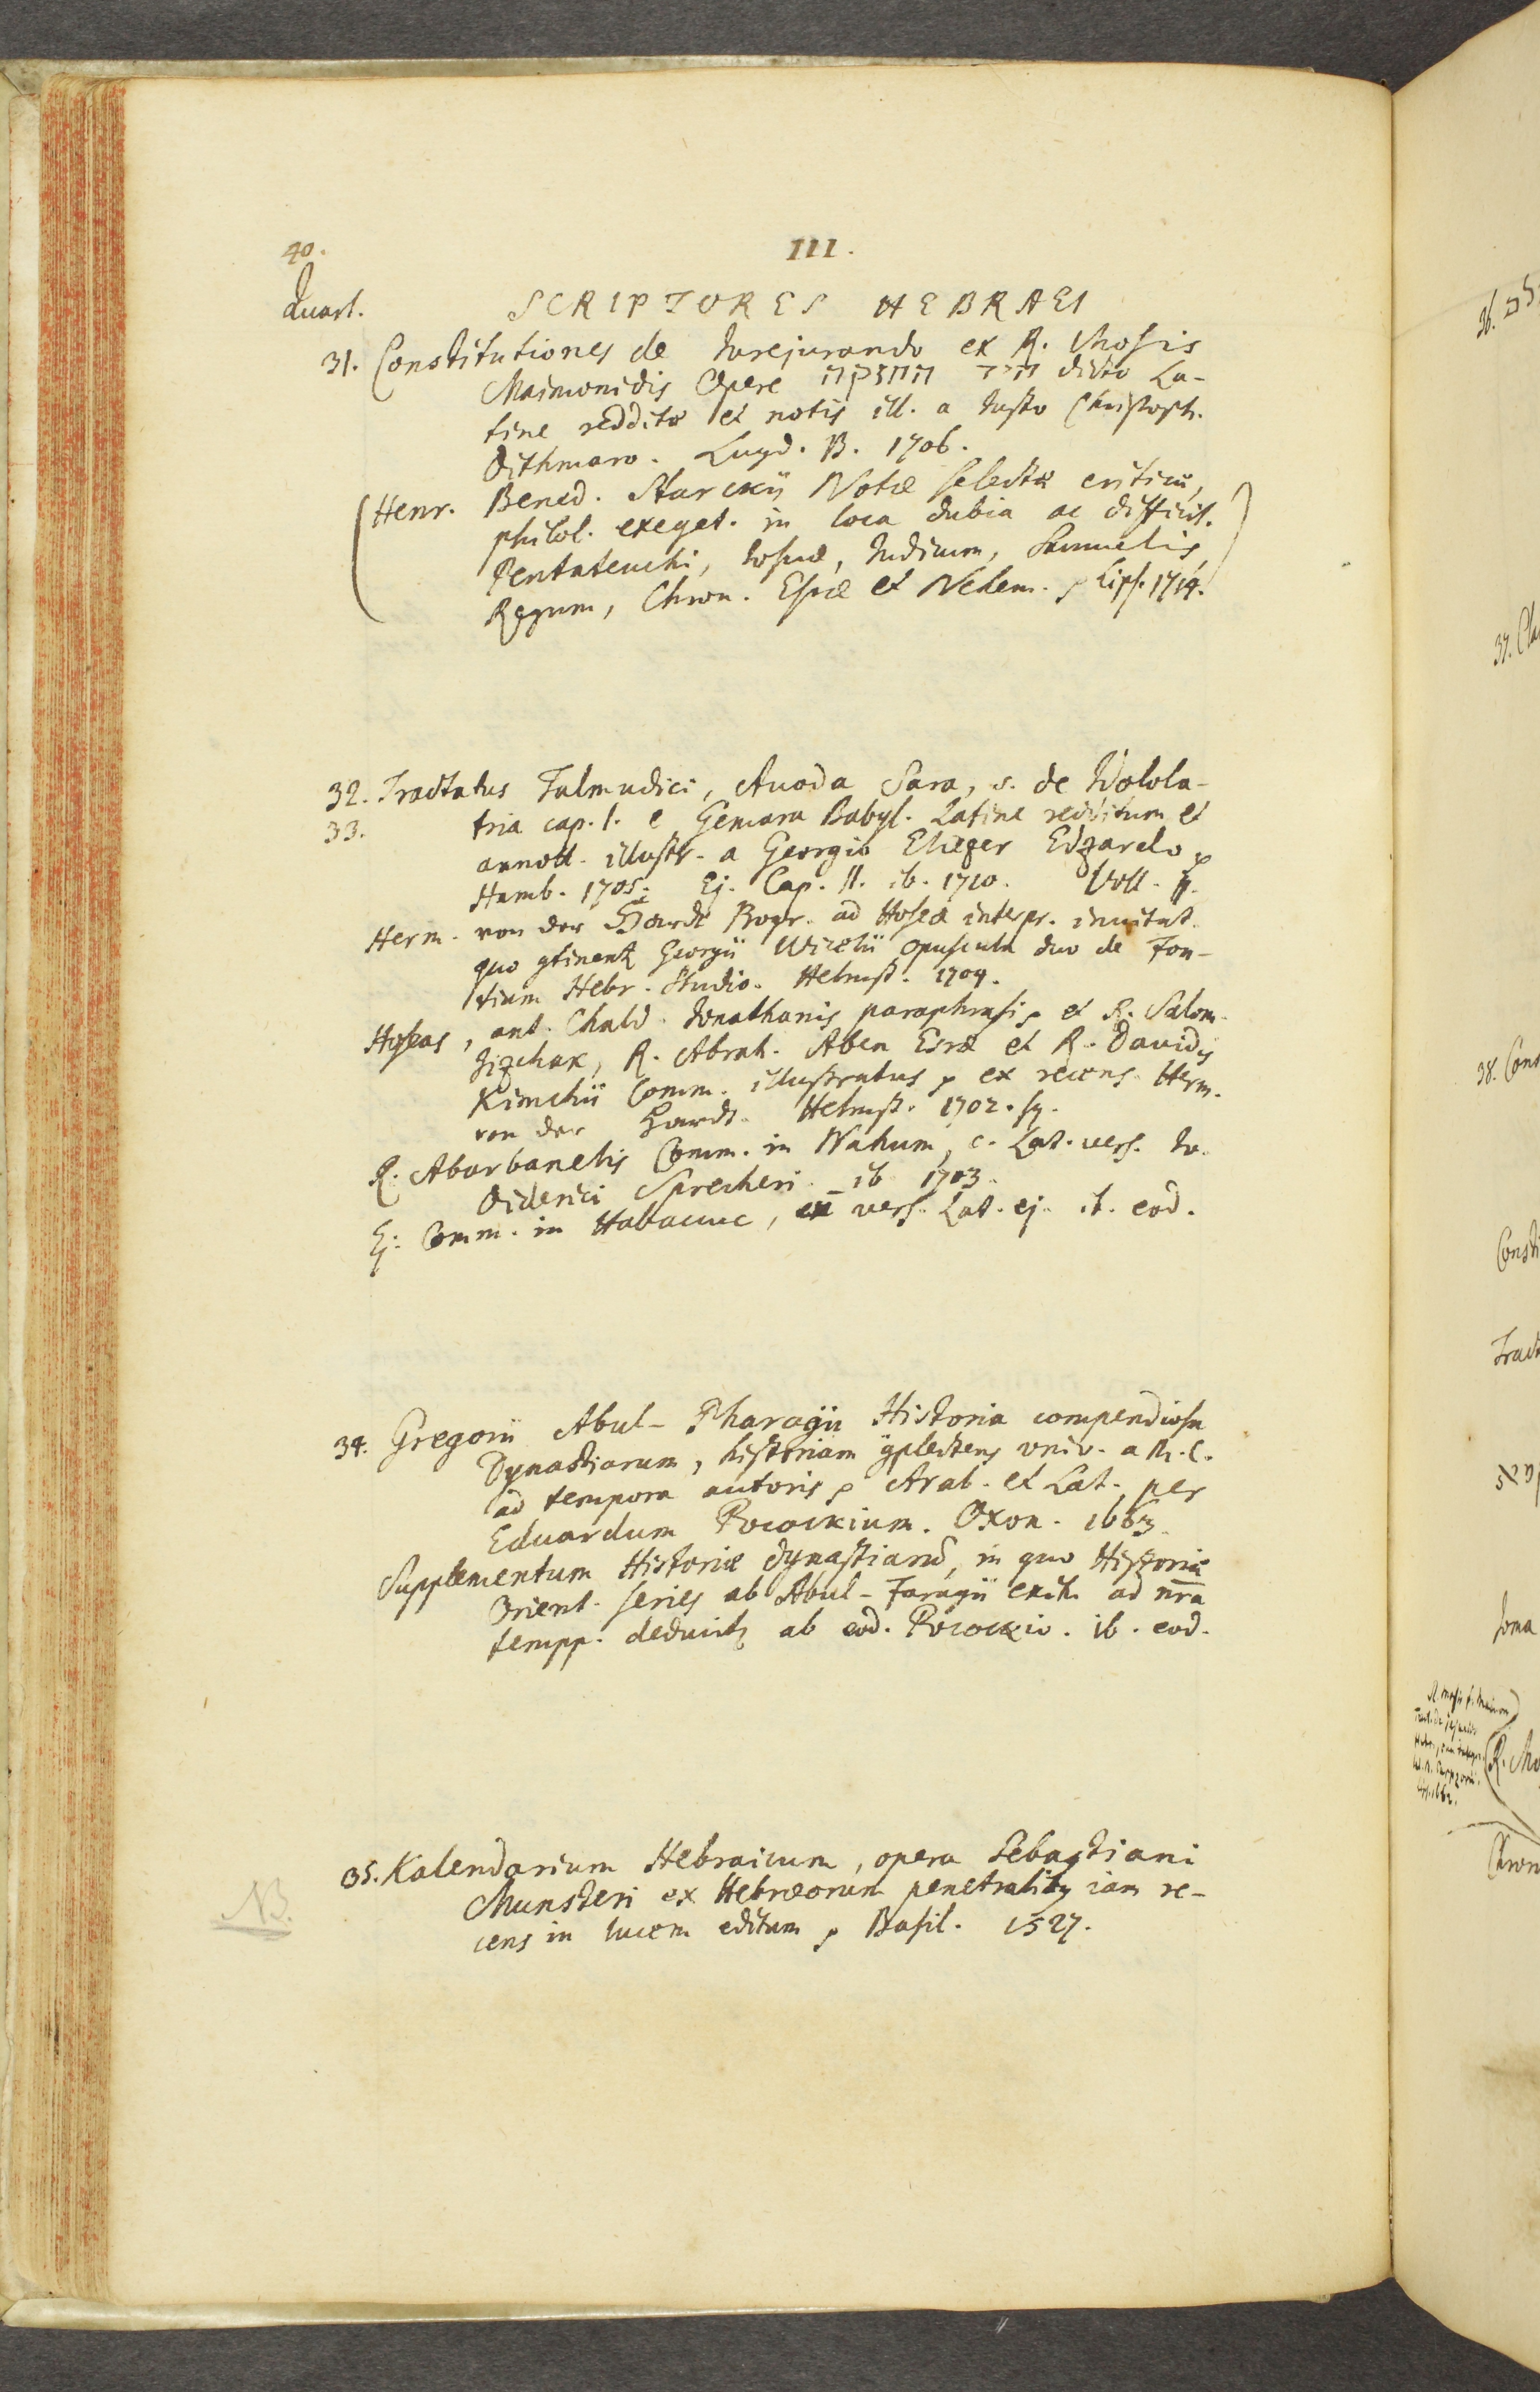 40.
III.
Quart.
SCRIPTORES HEBRAEI
31. Constitutiones de Jurejurando ex R. Mosis
Maimonidis Opere יד החזקה dicto La-
tine redditæ et notis ill. a Justo Christoph.
Dithmaro. Lugd. B. 1706.
(Henr. Bened. Starckii Notæ selectæ criticæ,
philol. exeget. in loca dubia ac difficil.
Pentateuchi, Josuæ, Judicum, Samuelis,
Regum, Chron. Esræ et Nehem. Lips. 1714.)
32. Tractatus Talmudici, Avoda Sara, s. de Idolola-
33. tria cap. I. e Gemara Babyl. Latine redditum et
annott. illustr. a Georgio Eliezer Edzardo
Hamb. 1705. Ej. Cap. II. ib. 1710. Voll. II.
Herm. von der Hardt Progr. ad Hoseæ interpr. invitat.
quo gtinent Georgii Wicelii opuscula duo de Fon-
tium Hebr. Studio. Helmst. 1704.
Hoseas, ant. Chald. Jonathanis paraphrasi, et R. Salom.
Jizchak, R. Abrah. Aben Esræ et R. Davidis
Kimchii Comm. illustratus ex recens. Herm.
von der Hardt. Helmst. 1702. sq.
R. Abarbanelis Comm. in Nahum, c. Lat. vers. Jo.
Diderici Sprecheri. ib 1703.
Ej. Comm. in Habacuc, vers. Lat. ej. it. eod.
34. Gregorii Abul-Pharagii Historia compendiosa
Dynastiarum, historiam gplectens univ. a M. C.
ad tempora autoris Arab. et Lat. per
Eduardum Pocockium. Oxon. 1663.
Supplementum Historiæ dynastiarū, in quo Historiæ
Orient. series ab Abul-Faragii exitu ad nr̄a
tempp. deducit ab eod. Pocockio. ib. eod.
35. Kalendarium Hebraicum, opera Sebastiani
Munsteri ex Hebræorum penetralib iam re-
cens in lucem editum Basil. 1527.
NB.
36.
37.
38. Cons
Consti
Tract
Joma